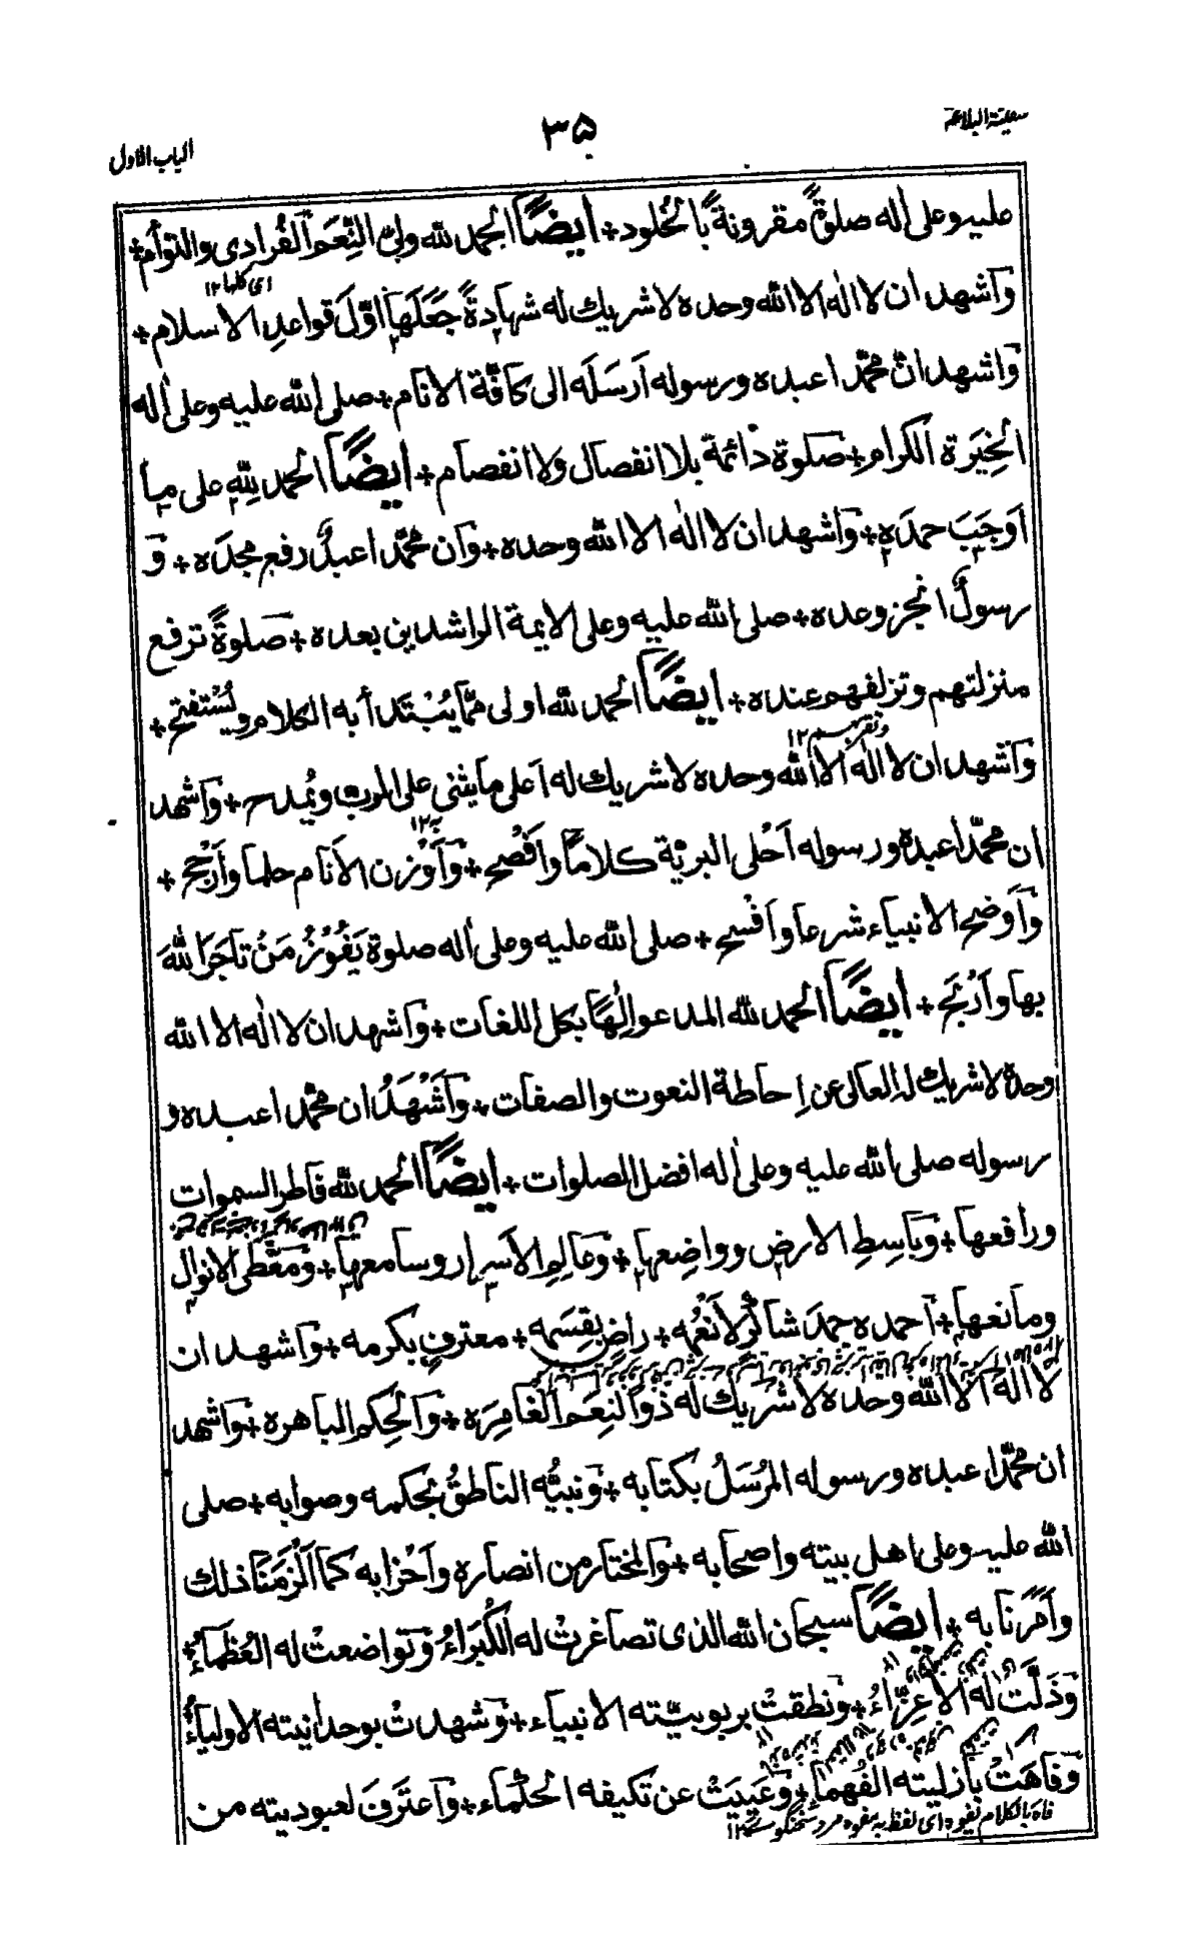 سفينة البلاغة
۳۵
الباب الاول
عليه وعلى اٰله صلوةً مقرونةً بالخُلود + ايضًا الحمد لله وليّ النِّعَم الفُرادى والتوأم +
وَاشهد ان لا اله الا الله وحده لا شريك له شهادةً جَعَلَها اوّلَ قواعدِ الاسلام +
اى كلها ۱۲
وَاشهد انّ محمّدا عبده ورسوله اَرسَلَه الى كافَّة الانام + صلى الله عليه وعلى اٰله
الخِيَرَة الكرام + صلوة دائمة بلا انفصال ولا انفصام + ايضًا الحمد لِلّهِ على ما
اَوجَبَ حمدَه + وَاشهد ان لا اله الا الله وحده + وَان محمّدا عبدٌ رفع مجدَه + وَ
رسولٌ انجز وعده + صلى الله عليه وعلى الايمة الراشدين بعده + صلوةً ترفع
منزلتهم وتزلفهم عنده + ايضًا الحمد لله اولى مّا يُبْتَدأ به الكلام ويُسْتفتح +
وَاشهد ان لا اله الا الله وحده لا شريك له اَعلى ما يثنى على الرب ويُمدح + وَاشهد
ان محمّدا عبده ورسوله اَحْلى البريّة كلامًا وَاَفْصح + وَاَوْزن الاَنام حلما واَرْجح +
وَاَوضح الانبياء شرعا واَفْسح + صلى الله عليه وعلى اٰله صلوة يَفُوْزُ مَنْ تاجَرَ اللهَ
بها واَرْبَح + ايضًا الحمد لله المدعو اِلٰهًا بكل اللغات + وَاشهد ان لا اله الا الله
وحدهٗ لا شريك له العالى عن اِحاطة النعوت والصفات + وَاَشْهَدُ ان محمّدا عبده و
رسوله صلى الله عليه وعلى اٰله افضل الصلوات + ايضًا الحمد لله فاطر السموات
ورافعها + وَباسِطِ الارضِ وواضِعها + وَعالِمِ الاَسرار وسامعها + وَمعطى الانوال
ومانعها + اَحمده حمدَ شاكرٍ لاَنعُمه + راضٍ بقِسَمِه + معترفٍ بكرمه + وَاشهد ان
لا اله الا الله وحده لا شريك له ذو النِعَم الغامِرَه + وَالحِكم الباهره + وَاشهد
ان محمّدا عبده ورسوله المُرْسَلُ بكتابه + وَنبيُّه الناطقُ بحكمه وصوابه + صلى
الله عليه وعلى اهل بيته واصحابه + وَالمختار من انصاره واَحْزابه كما اَلْزَمَنا ذلك
واَمَرَنا به + ايضًا سبحان الله الذى تصاغرتْ له الكُبَراءُ وَتواضعتْ له العُظَماءُ +
وَذَلَّتْ لَهُ الاَعِزّاءُ + وَنطقتْ بربوبيّته الانبياء + وَشهدتْ بوحدانيته الاولياءُ
وَفاهَتْ بازليته الفُهماءُ + وَعَيِيَتْ عن تكيفه الحُكماء + وَاعترَفَ لعبوديته من
فاه بالكلام يفوه اى لفظ به مفوه مرد سخنگو ۱۲